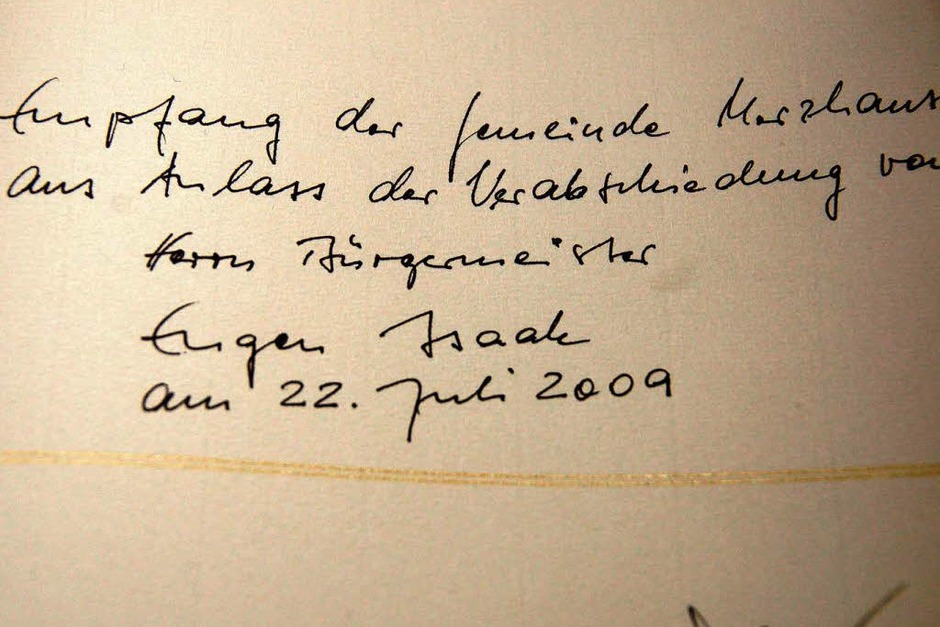 Empfang der Gemeinde Merzhaus
aus Anlass der Verabschiedung von
Herrn Bürgermeister
Eugen Isaak
am 22. Juli 2009